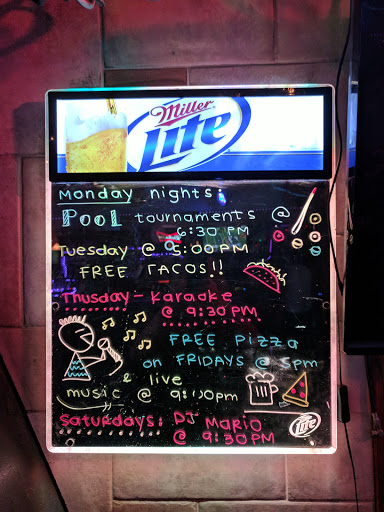 Miller
Lite
Monday nights:
Pool tournaments @
6:30 PM
Tuesday @ 5:00 PM
FREE TACOS!!
Thusday - Karaoke
@ 9:30 PM
FREE Pizza
on FRIDAYS @ 5pm
& live
music @ 9:00pm
Saturdays: DJ Mario
@ 9:30 PM
Lite